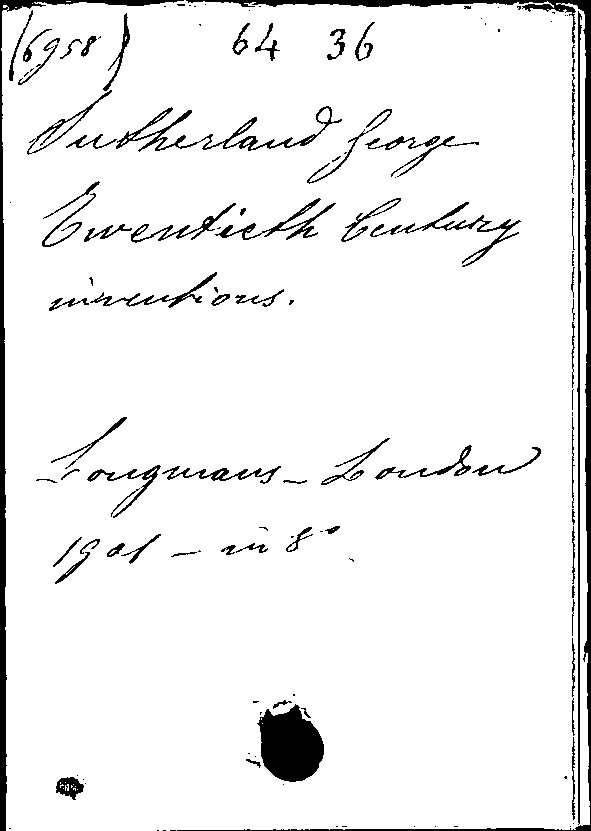 (6958) 64 36
Sutherland George
Twentieth Century
inventions.
Longmans - London
1901 - in 8°